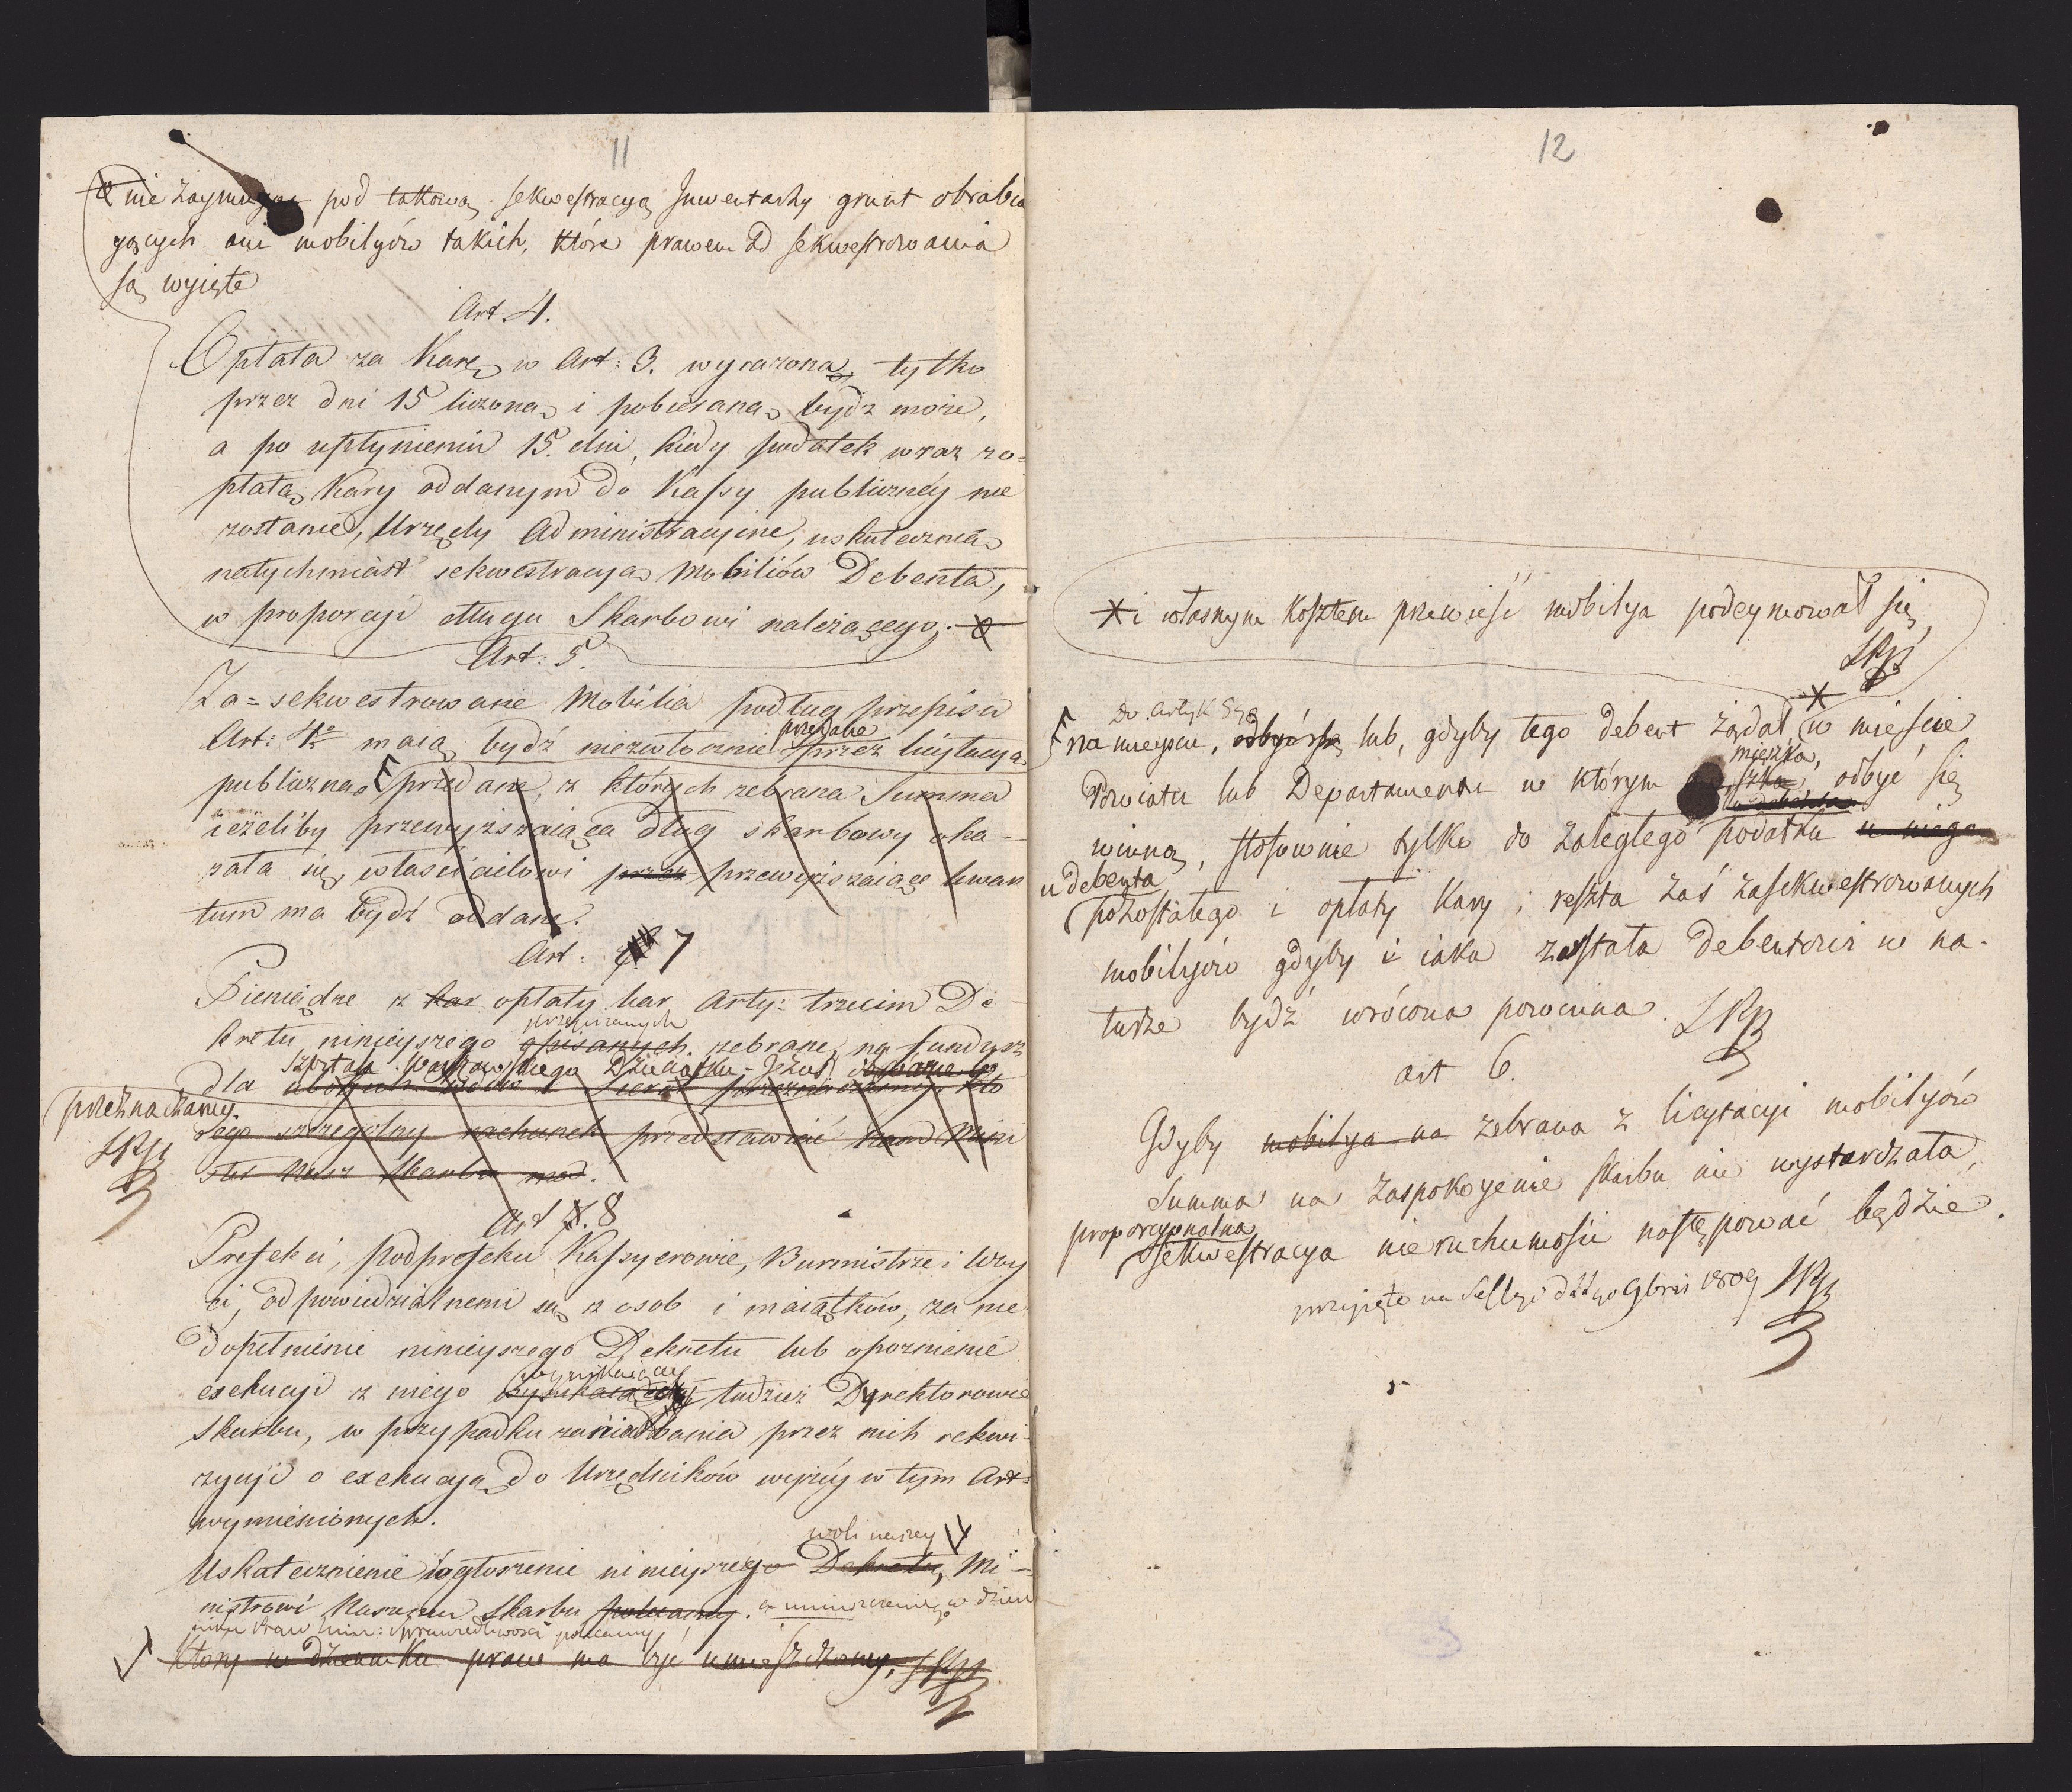 11
nie zaymuiąc pod takową sekwestracyą Inwentarzy grunt obrabia
yących ani mobilyów takich, które prawem od sekwestrowania
są wyięte
Art. 4.
Opłata za Karę w Art: 3. wyrażona, tylko
przez dni 15 liczoną i pobieraną bydź może,
a po upłynieniu 15. dni, kiedy podatek wraz zo=
płatą Kary oddanym do Kassy publiczney nie
zostanie, Urzędy Administracyine, uskutecznią
natychmiast sekwestracyą Mobiliów Debenta,
w proporcyi długu Skarbowi należącego.
Art: 5.
Za=sekwestrowane Mobilia podług przepisu
przedane
Art: 4go maią bydź niezwłocznie przez licytacyą
publiczną przedane, z których zebrana Summa
ieżeliby przewyższaiąca dług skarbowy oka-
zała się, właścicielowi przez przewyższaiące kwan
tum ma bydź oddane.
Art: 7
Pieniądze z kar opłaty kar Arty: trzecim De-
przepisanych
kretu ninieyszego opisanych zebrane, na fundusz
Szpitala Warszawskiego Dzieciątka-Jezus
dla ubogich i sierot przeznaczamy, kto
przeznaczamy.
rego szczególny rachunek przedstawiać nam Mini
ster nasz Skarbu ma.
Art 8
Prefekci, Podprefekci Kassyerowie, Burmistrze i Woy
ci, odpowiedzialnemi są z osob i maiątków, za nie
dopełnienie ninieyszego Dekretu lub opoznienie
wynikaiącey
exekucyi z niego tudzież Dyrektorowie
Skarbu, w przypadku zaniedbania przez nich rekwi-
zycyi o exekucyą do Urzędników wyżéy w tym Art=
wymienionych.
woli naszey
Uskutecznienie i ogłoszenie ninieyszego Dekretu, Mi-
nistrowi Naszemu Skarbu polecamy. a umieszczenie w dzien
niku Praw Min: Sprawiedliwości polecamy
Który w dzienniku praw ma być umieszczony,
12
i własnym kosztem przewieść mobilya podeymował się
Do Artyk 5go
na mieyscu, odbyć się lub, gdyby tego debent żądał, w mieście
mieszka,
Powiatu lub Departamentu w którym odbyć się
winna, stosownie tylko do zaległego podatku u niego
u debenta
pozostałego i opłaty kary; reszta zaś zasekwestrowanych
mobilyów gdyby i iaka została debentowi w na-
turze bydź wrócona powinna.
art 6.
Gdyby mobilya na zebrana z licytacyi mobilyów
Summa na zaspokoyenie skarbu nie wystarczała,
proporcyonalna
sekwestracya nieruchomości następować będzie.
przyięte na Sessyi d 22go 9bris 1809